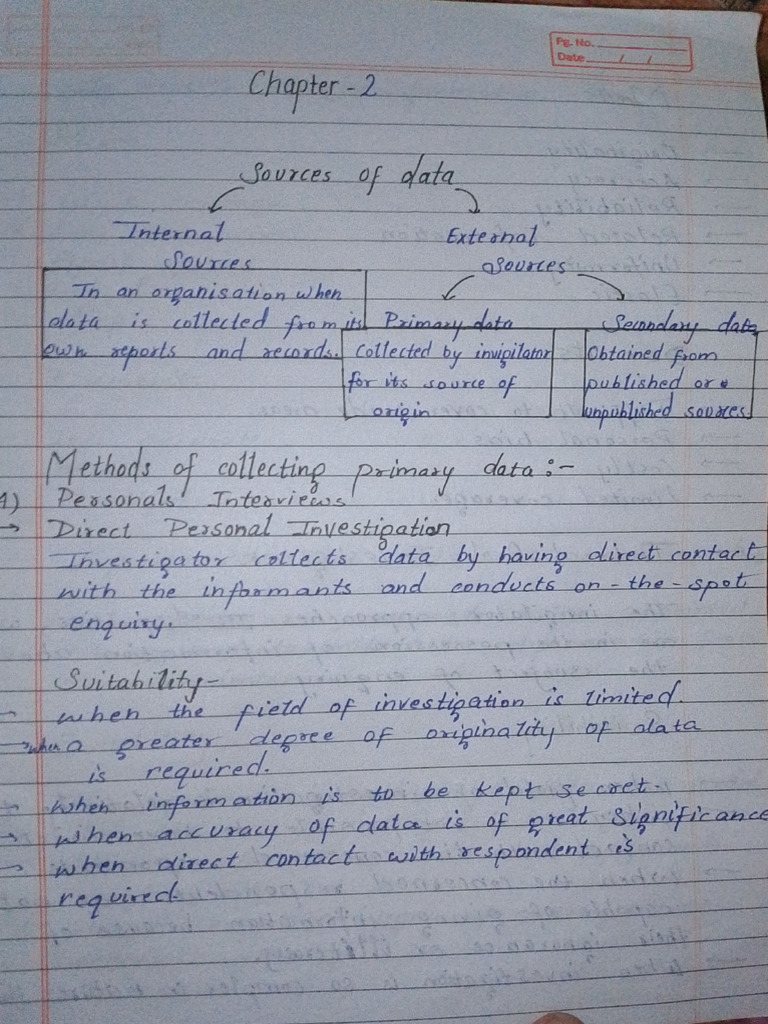 Pg. No.
Date / /
Chapter - 2
Sources of data
Internal Sources
External Sources
In an organisation when
data is collected from its
own reports and records.
Primary data
Collected by invigilator
for its source of
origin
Secondary data
Obtained from
published or
unpublished sources
Methods of collecting primary data :-
1) Personals Interviews
→ Direct Personal Investigation
Investigator collects data by having direct contact
with the informants and conducts on-the-spot
enquiry.
Suitability -
→ when the field of investigation is limited.
→ when a greater degree of originality of data
is required.
→ when information is to be kept secret.
→ when accuracy of data is of great significance
→ when direct contact with respondent is
required.